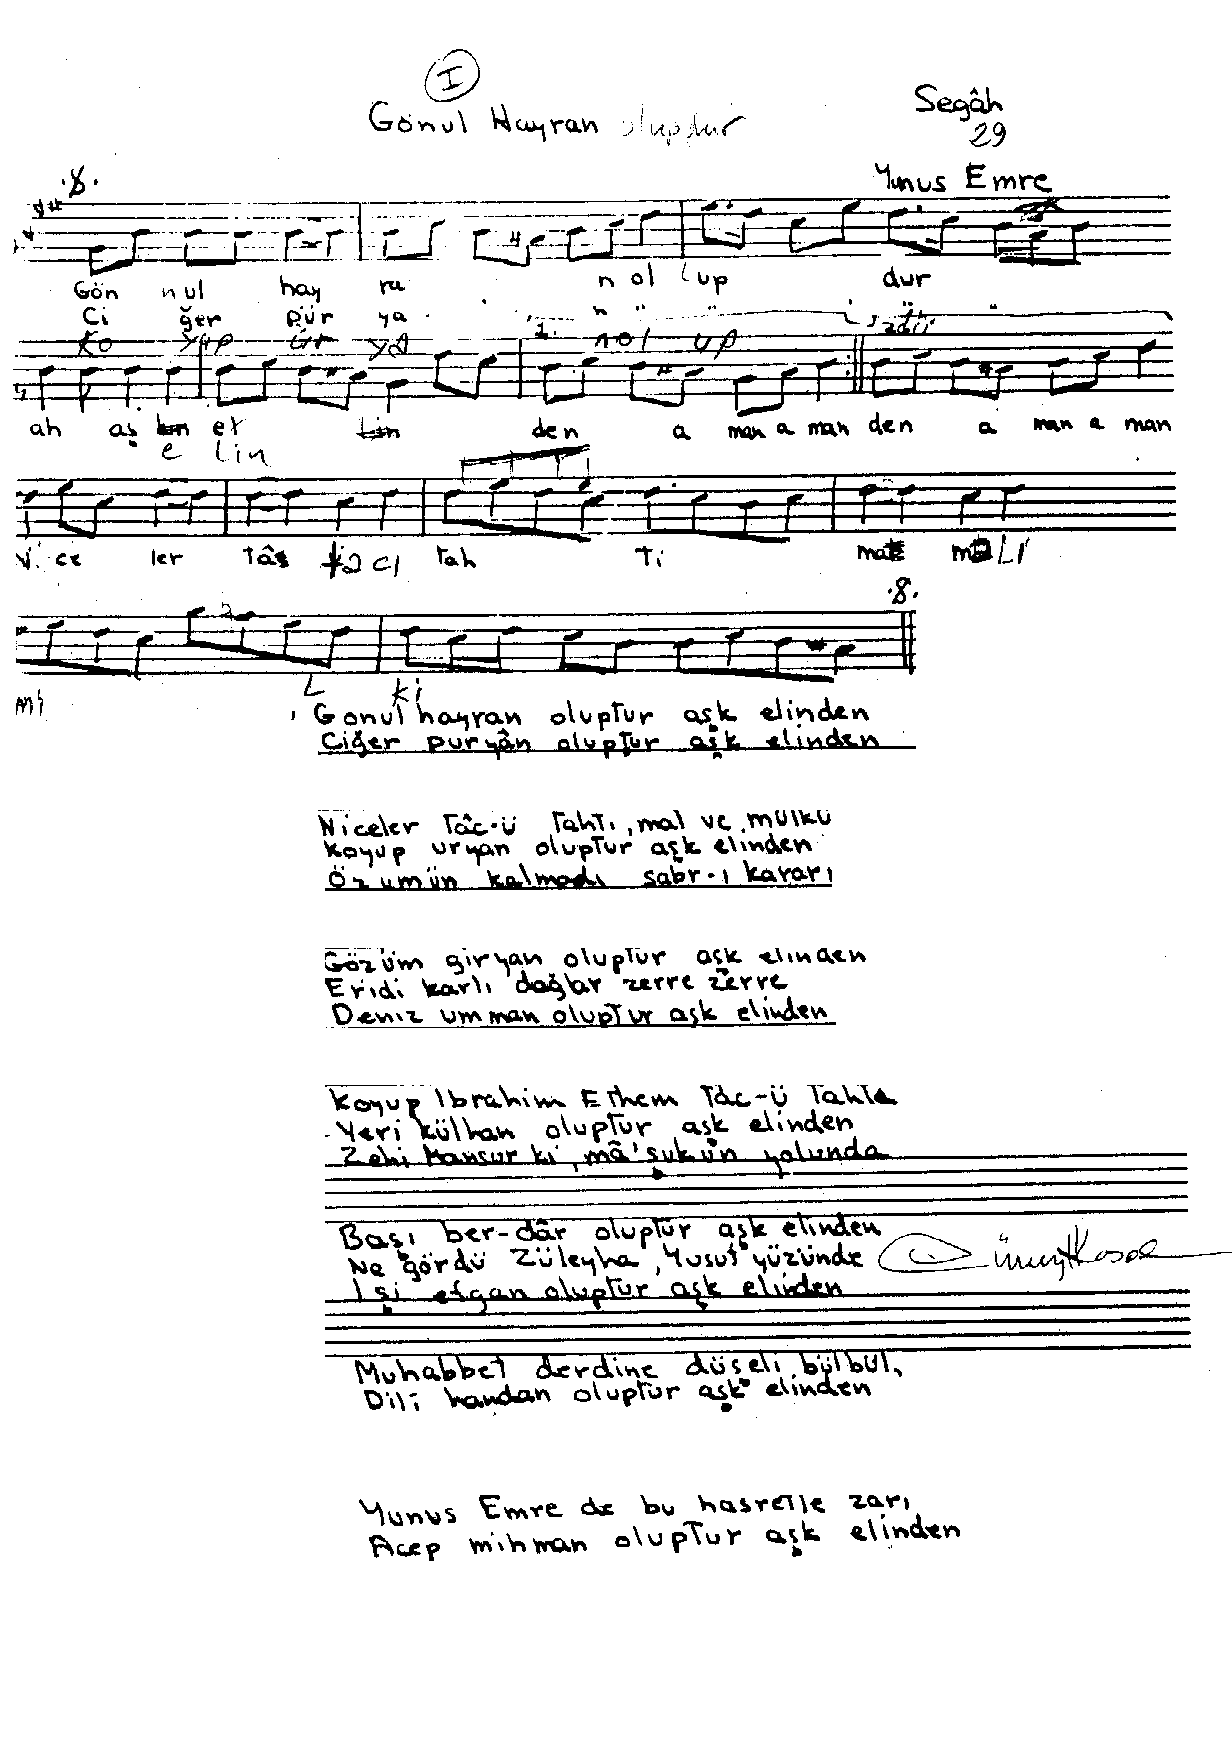 I
Gönul Hayran olupdur
Segâh
29
Yunus Emre
Gön nul hay ra n ol lup dur
Ci ğer pür ya n " " "
ko yup ür ya nol up
1.
ah aş et den a man a man den a man a man
e lin
Ni ce ler tâs tacı tah ti mali
mi L ki
Gonul hayran oluptur aşk elinden
Ciğer puryân oluptur aşk elinden
Niceler tâc-ü tahtı, mal ve mülkü
Koyup uryan oluptur aşk elinden
Özümün kalmadı sabr-ı kararı
Gözüm giryan oluptur aşk elinden
Eridi karlı dağlar zerre zerre
Deniz umman oluptur aşk elinden
Koyup Ibrahim Ethem tâc-ü tahta
Yeri külhan oluptur aşk elinden
Zehi Mansur ki, mâ'şukun yolunda
Başı ber-dâr oluptur aşk elinden
Ne gördü Züleyha, Yusuf yüzünde
Işi efgan oluptur aşk elinden
Muhabbet derdine düşeli bülbül,
Dili handan oluptur aşk elinden
Yunus Emre de bu hasretle zarı
Acep mihman oluptur aşk elinden